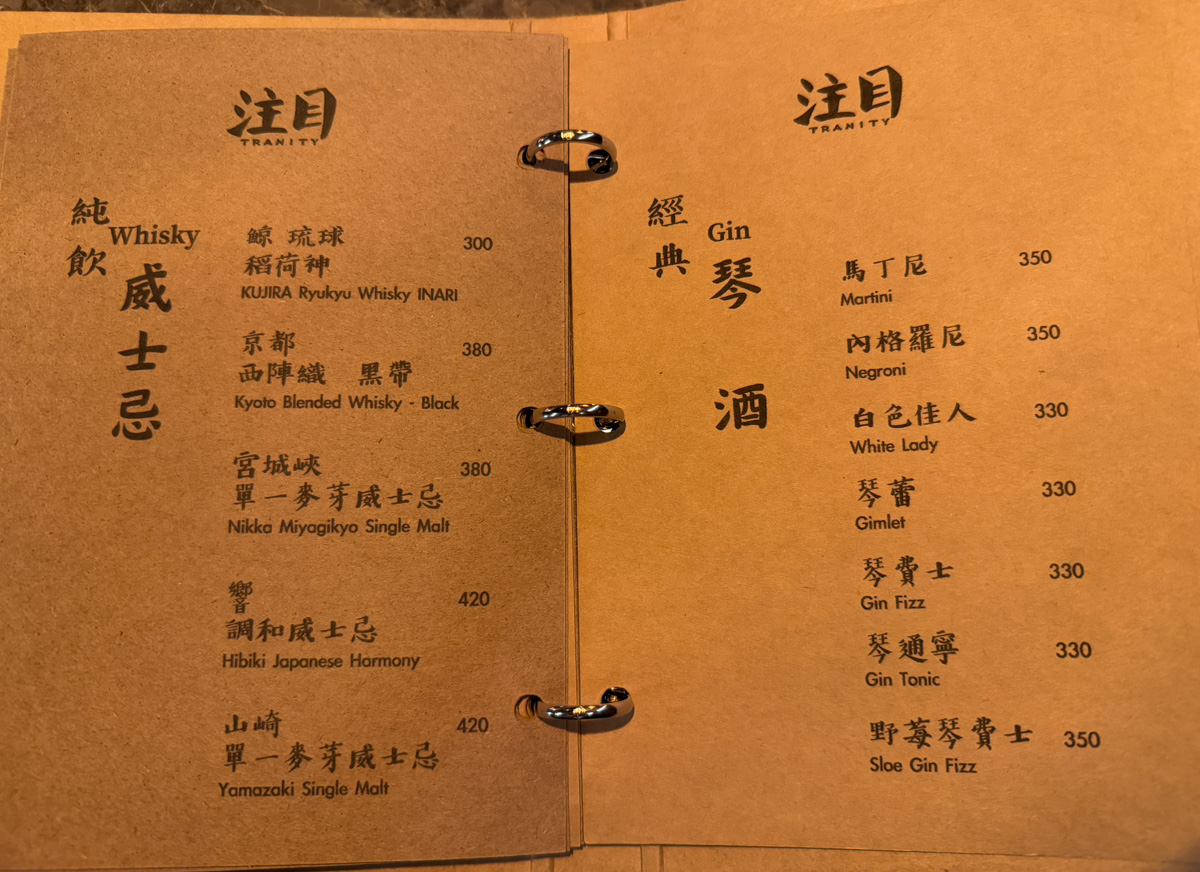 注目
TRANITY
純飲
Whisky
威士忌
鯨 琉球
稻荷神
300
KUJIRA Ryukyu Whisky INARI
京都
380
西陣織 黒帶
Kyoto Blended Whisky - Black
宮城峽
380
單一麥芽威士忌
Nikka Miyagikyo Single Malt
響
420
調和威士忌
Hibiki Japanese Harmony
山崎
420
單一麥芽威士忌
Yamazaki Single Malt
注目
TRANITY
經典
Gin
琴酒
馬丁尼 350
Martini
內格羅尼 350
Negroni
白色佳人 330
White Lady
琴蕾 330
Gimlet
琴費士 330
Gin Fizz
琴通寧 330
Gin Tonic
野莓琴費士 350
Sloe Gin Fizz